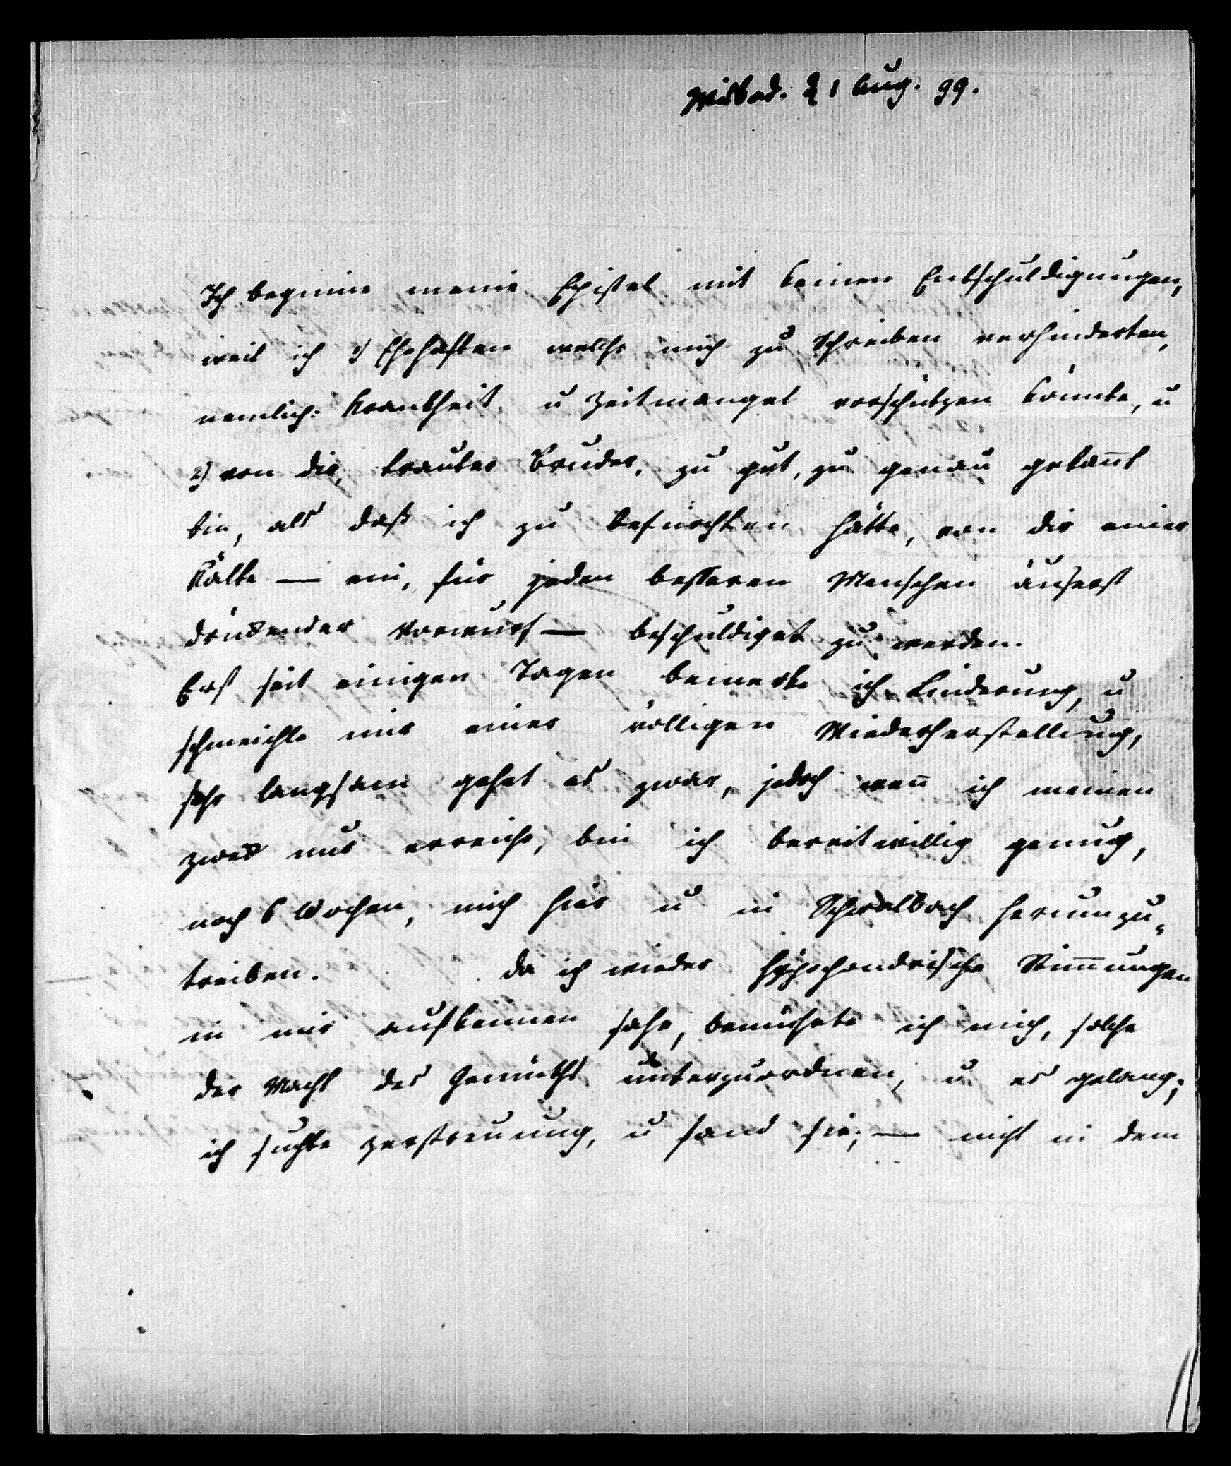 Wisbad. 21 Aug. 99.
Ich beginne meine Epistel mit keinen Entschuldigungen,
weil ich 1) Ehehaften welche mich zu schreiben verhinderten,
nemlich: Krankheit u Zeitmangel vorschützen könnte, u
2) von dir, trauter Bruder, zu gut, zu genau gekan̄t
bin, als daß ich zu befürchten hätte, von dir einer
Kälte — ein, für jeden besseren Menschen äuserst
drükender Vorwurf — beschuldiget zu werden.
Erst seit einigen Tagen bemerke ich Linderung, u
schmeichle mir einer völligen Wiederherstellung,
sehr langsam gehet es zwar, jedoch wen̄ ich meinen
Zwek nur erreiche, bin ich bereitwillig genug,
noch 6 Wochen, mich hier u in Schwalbach herumzu-
treiben. Da ich wieder hypochondrische Stim̄ungen
in mir aufkeimen sahe, bemühete ich mich, solche
der Macht des Gemüths unterzuordnen, u es gelang;
ich suchte Zerstreuung, u fand sie; — nicht in dem